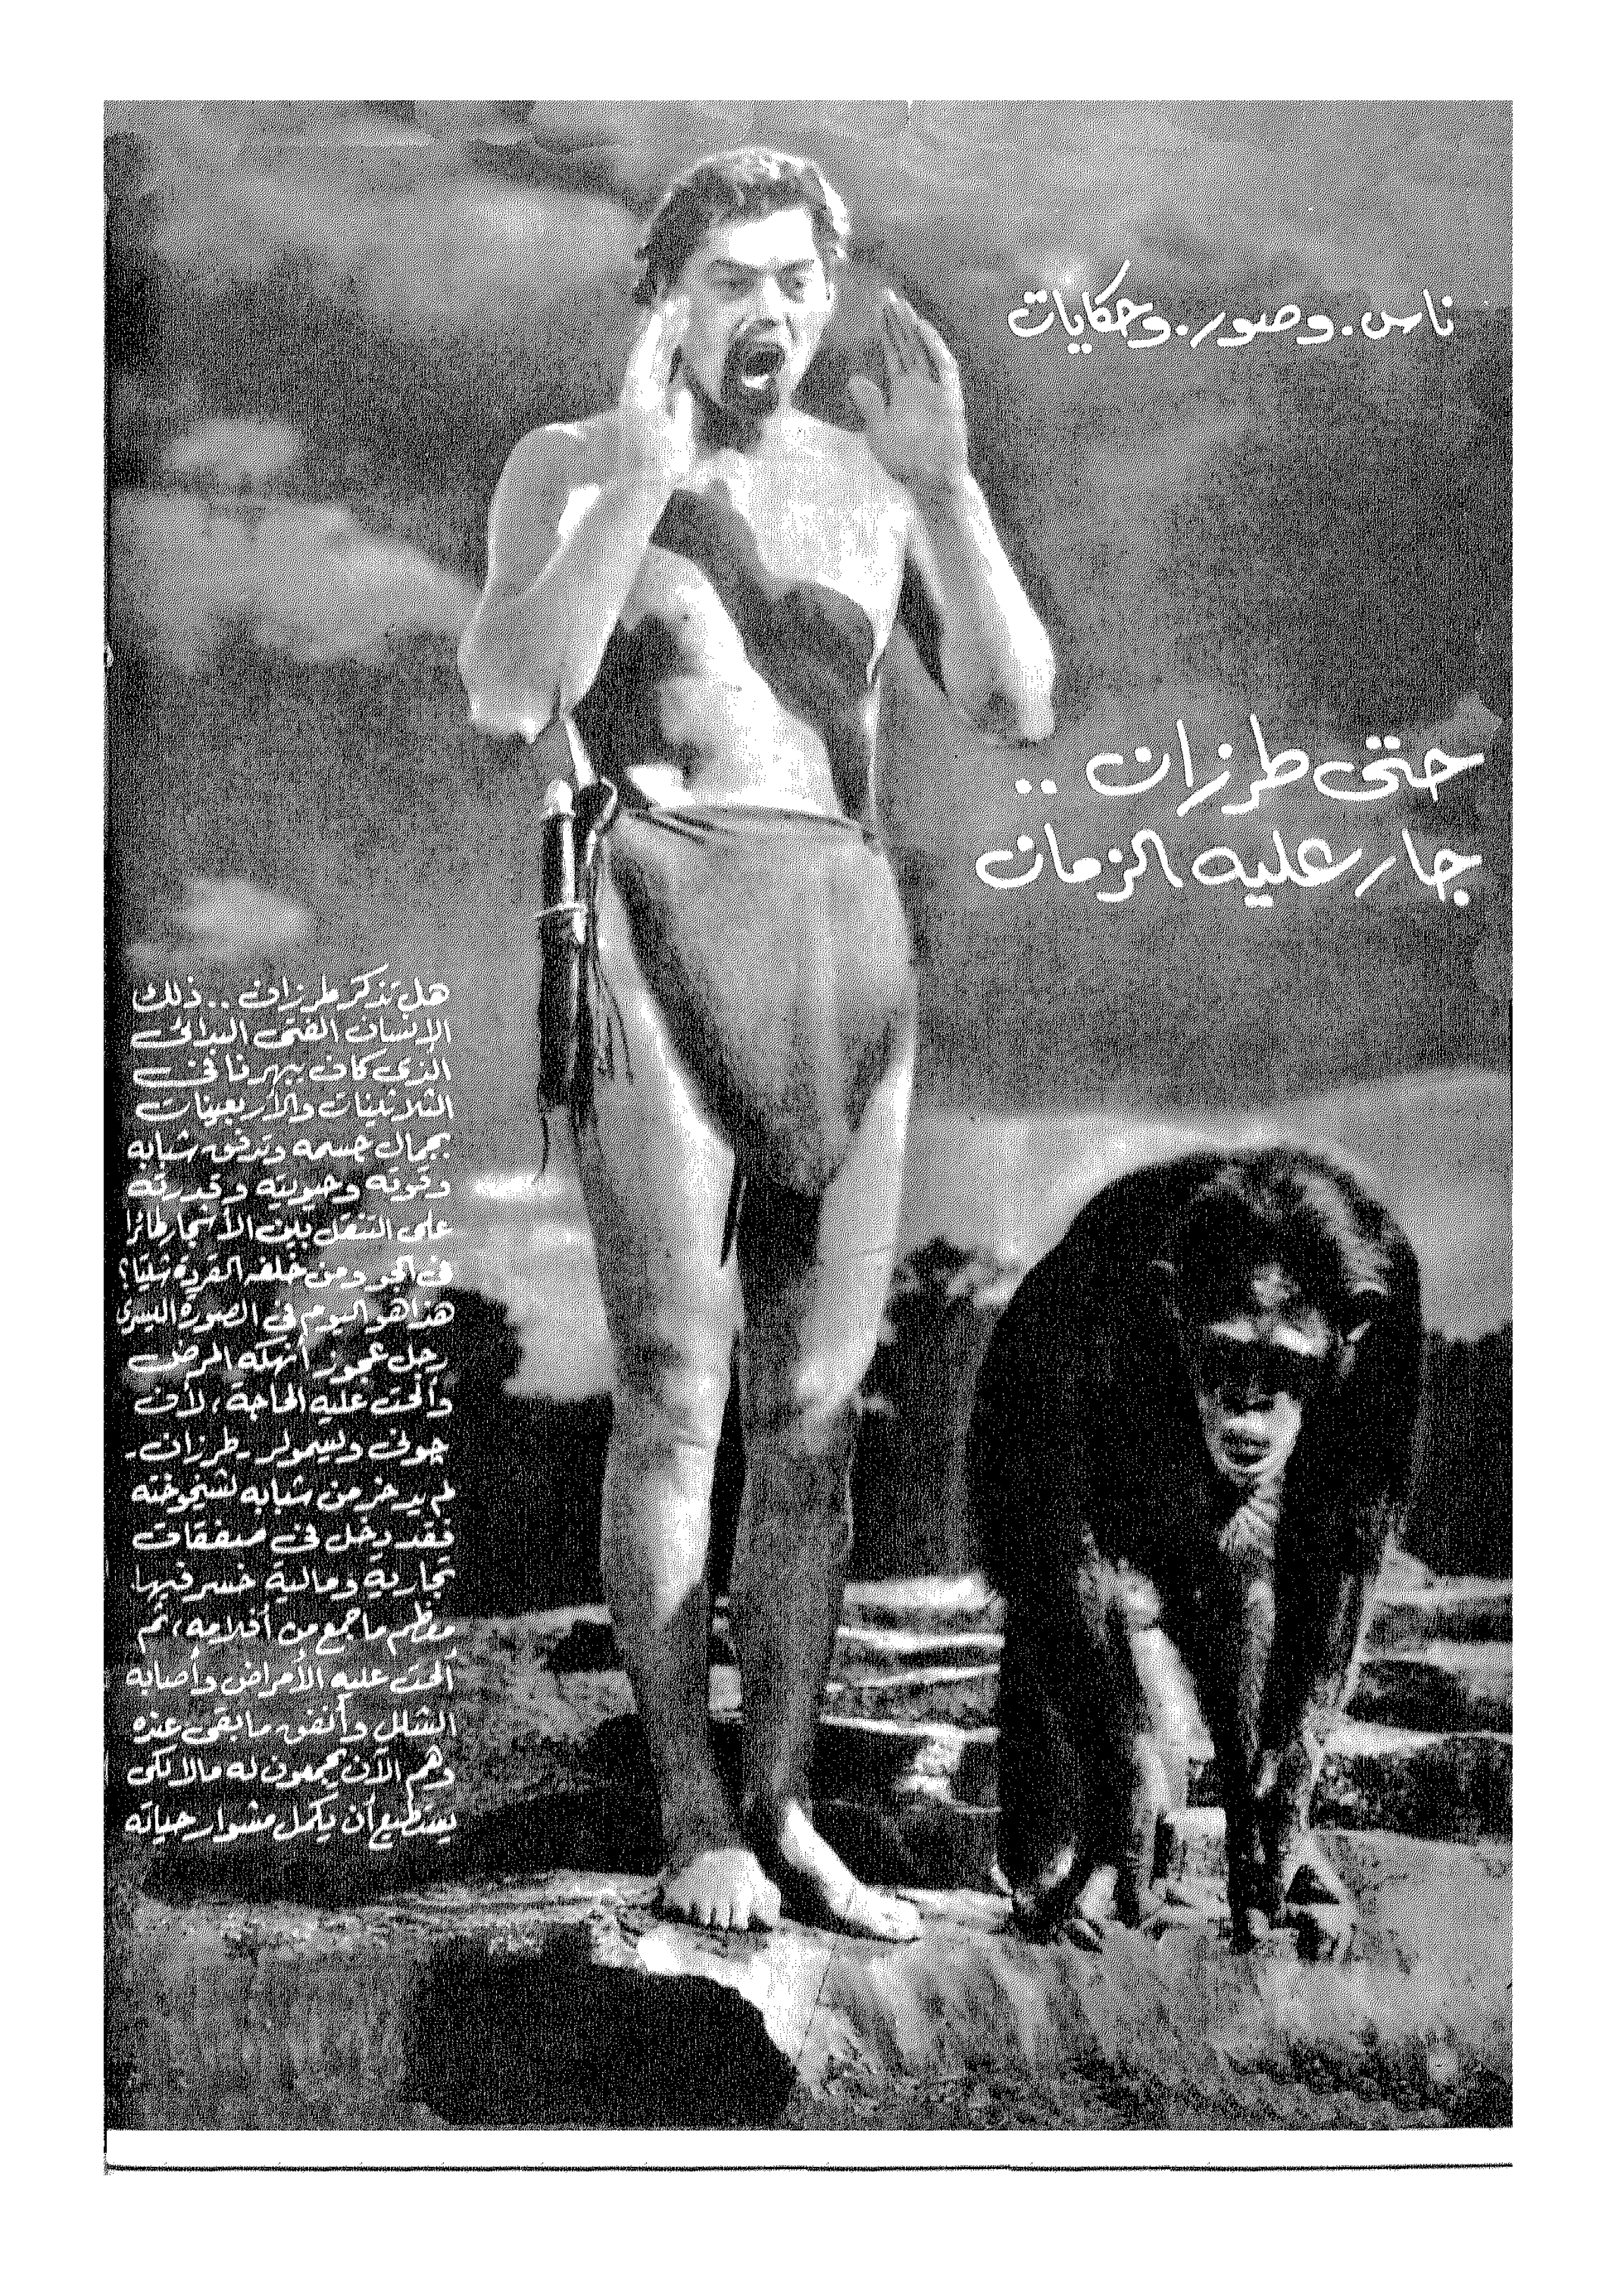 ناس. وصور. وحكايات
حتى طرزان ..
جار عليه الزمان
هل تذكر طرزان .. ذلك
الإنسان الفتى البدائى
الذى كان يبهرنا فى
الثلاثينات والأربعينات
بجمال جسمه وتدفق شبابه
وقوته وحيويته وقدرته
على التنقل بين الأشجار طائرا
فى الجو ومن خلفه القردة شيتا؟
هذا هو اليوم فى الصورة اليسرى
رجل عجوز أنهكه المرض
وألحت عليه الحاجة، لأن
چونى ويسمولر - طرزان -
لم يدخر من شبابه لشيخوخته
فقد دخل فى صفقات
تجارية ومالية خسر فيها
معظم ما جمع من أفلامه، ثم
ألحت عليه الأمراض وأصابه
الشلل وأنفق ما بقى عنده
وهم الآن يجمعون له مالا لكى
يستطيع أن يكمل مشوار حياته